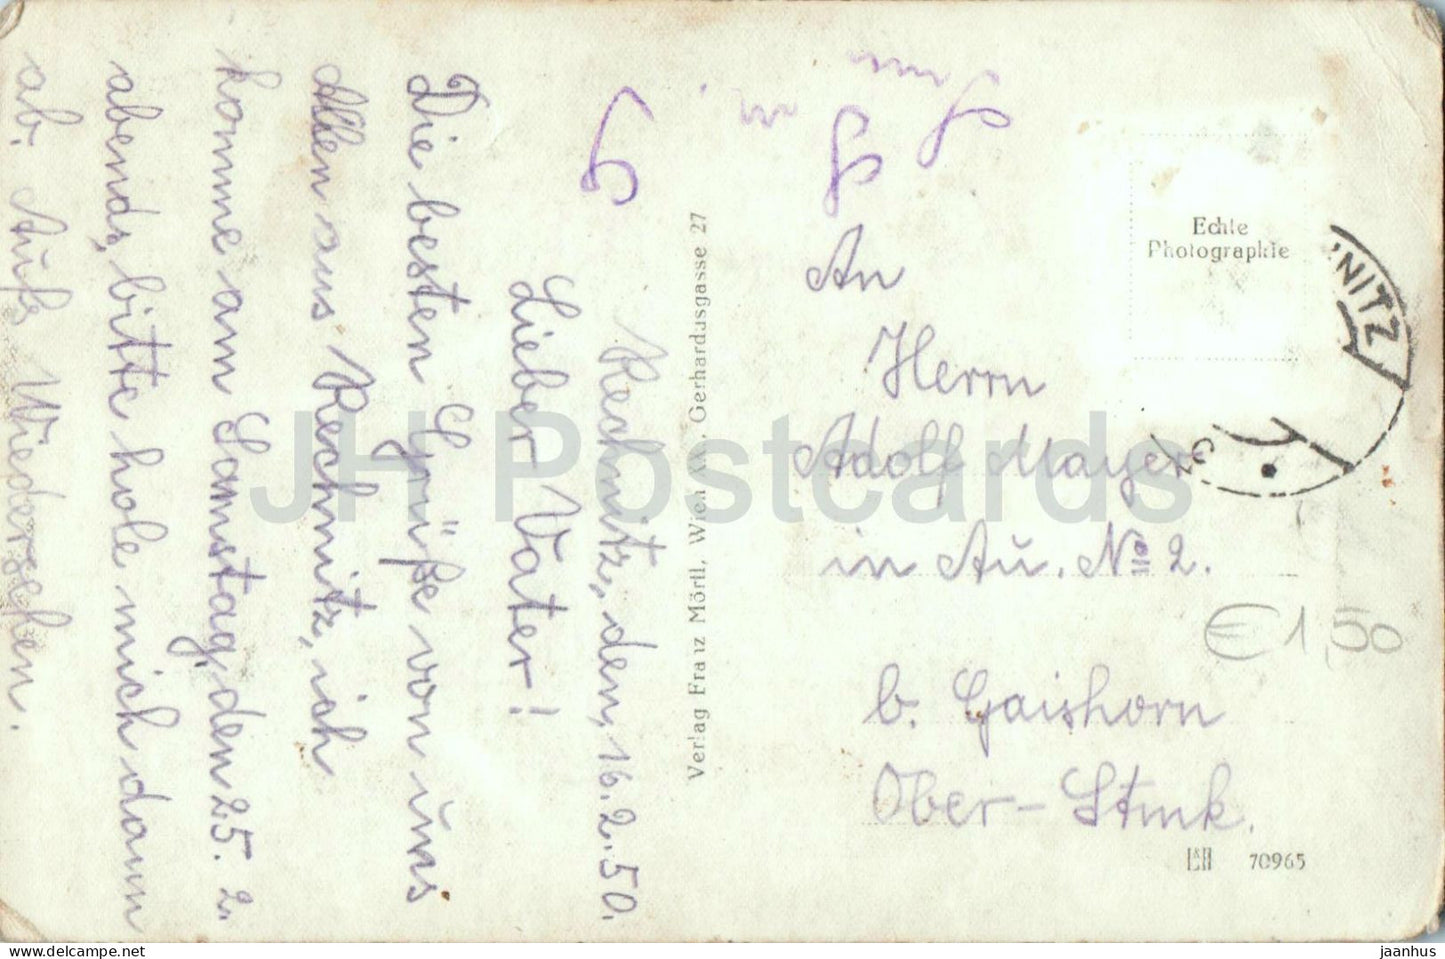 Rechnitz, den, 16.2.50.
Lieber Vater!
Die besten Grüße von uns
Allen aus Rechnitz, ich
komme am Samstag, den 25. 2.
abends, bitte hole mich dann
ab. Aufs Wiedersehen.
Verlag Franz Mörtl, Wien XVI., Gerhardusgasse 27
Echte
Photographie
NITZ
An
Herrn
Adolf Mayer
in Au. № 2.
b. Gaishorn
Ober-Stmk.
€1,50
70965
JH Postcards
delcampe.net
jaanhus